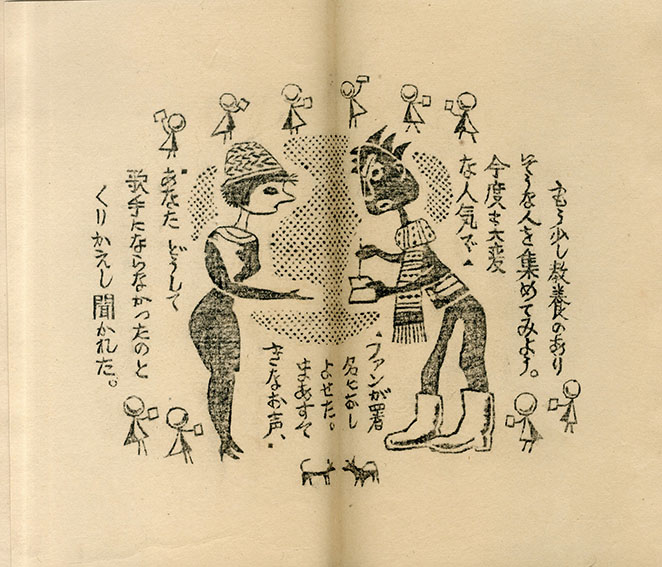 もう少し教養のあり
そうな人を集めてみよう。
今度も大変
な人気で
ファンが署
名におし
よせた。
まあすて
きなお声、
あなた どうして
歌手にならなかったのと
くりかえし聞かれた。